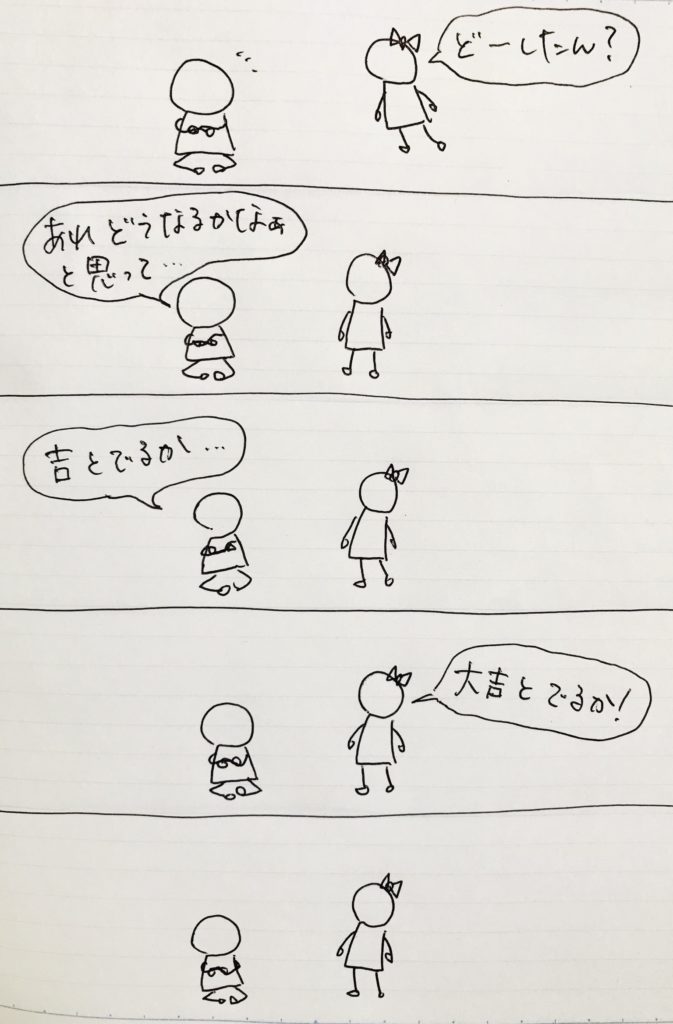 どーしたん?
あれ どうなるかなぁ
と思って…
吉とでるか…
大吉とでるか!